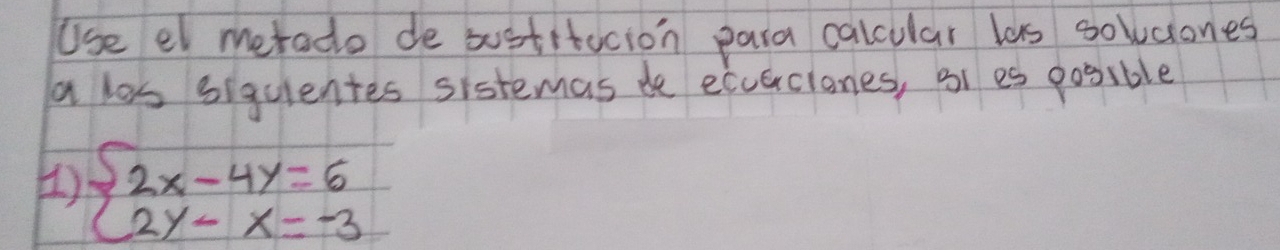 Use el metodo de sustitución para calcular las soluciones
a los siguientes sistemas de ecuaciones, si es posible
1) { 2x - 4y = 6
2y - x = -3